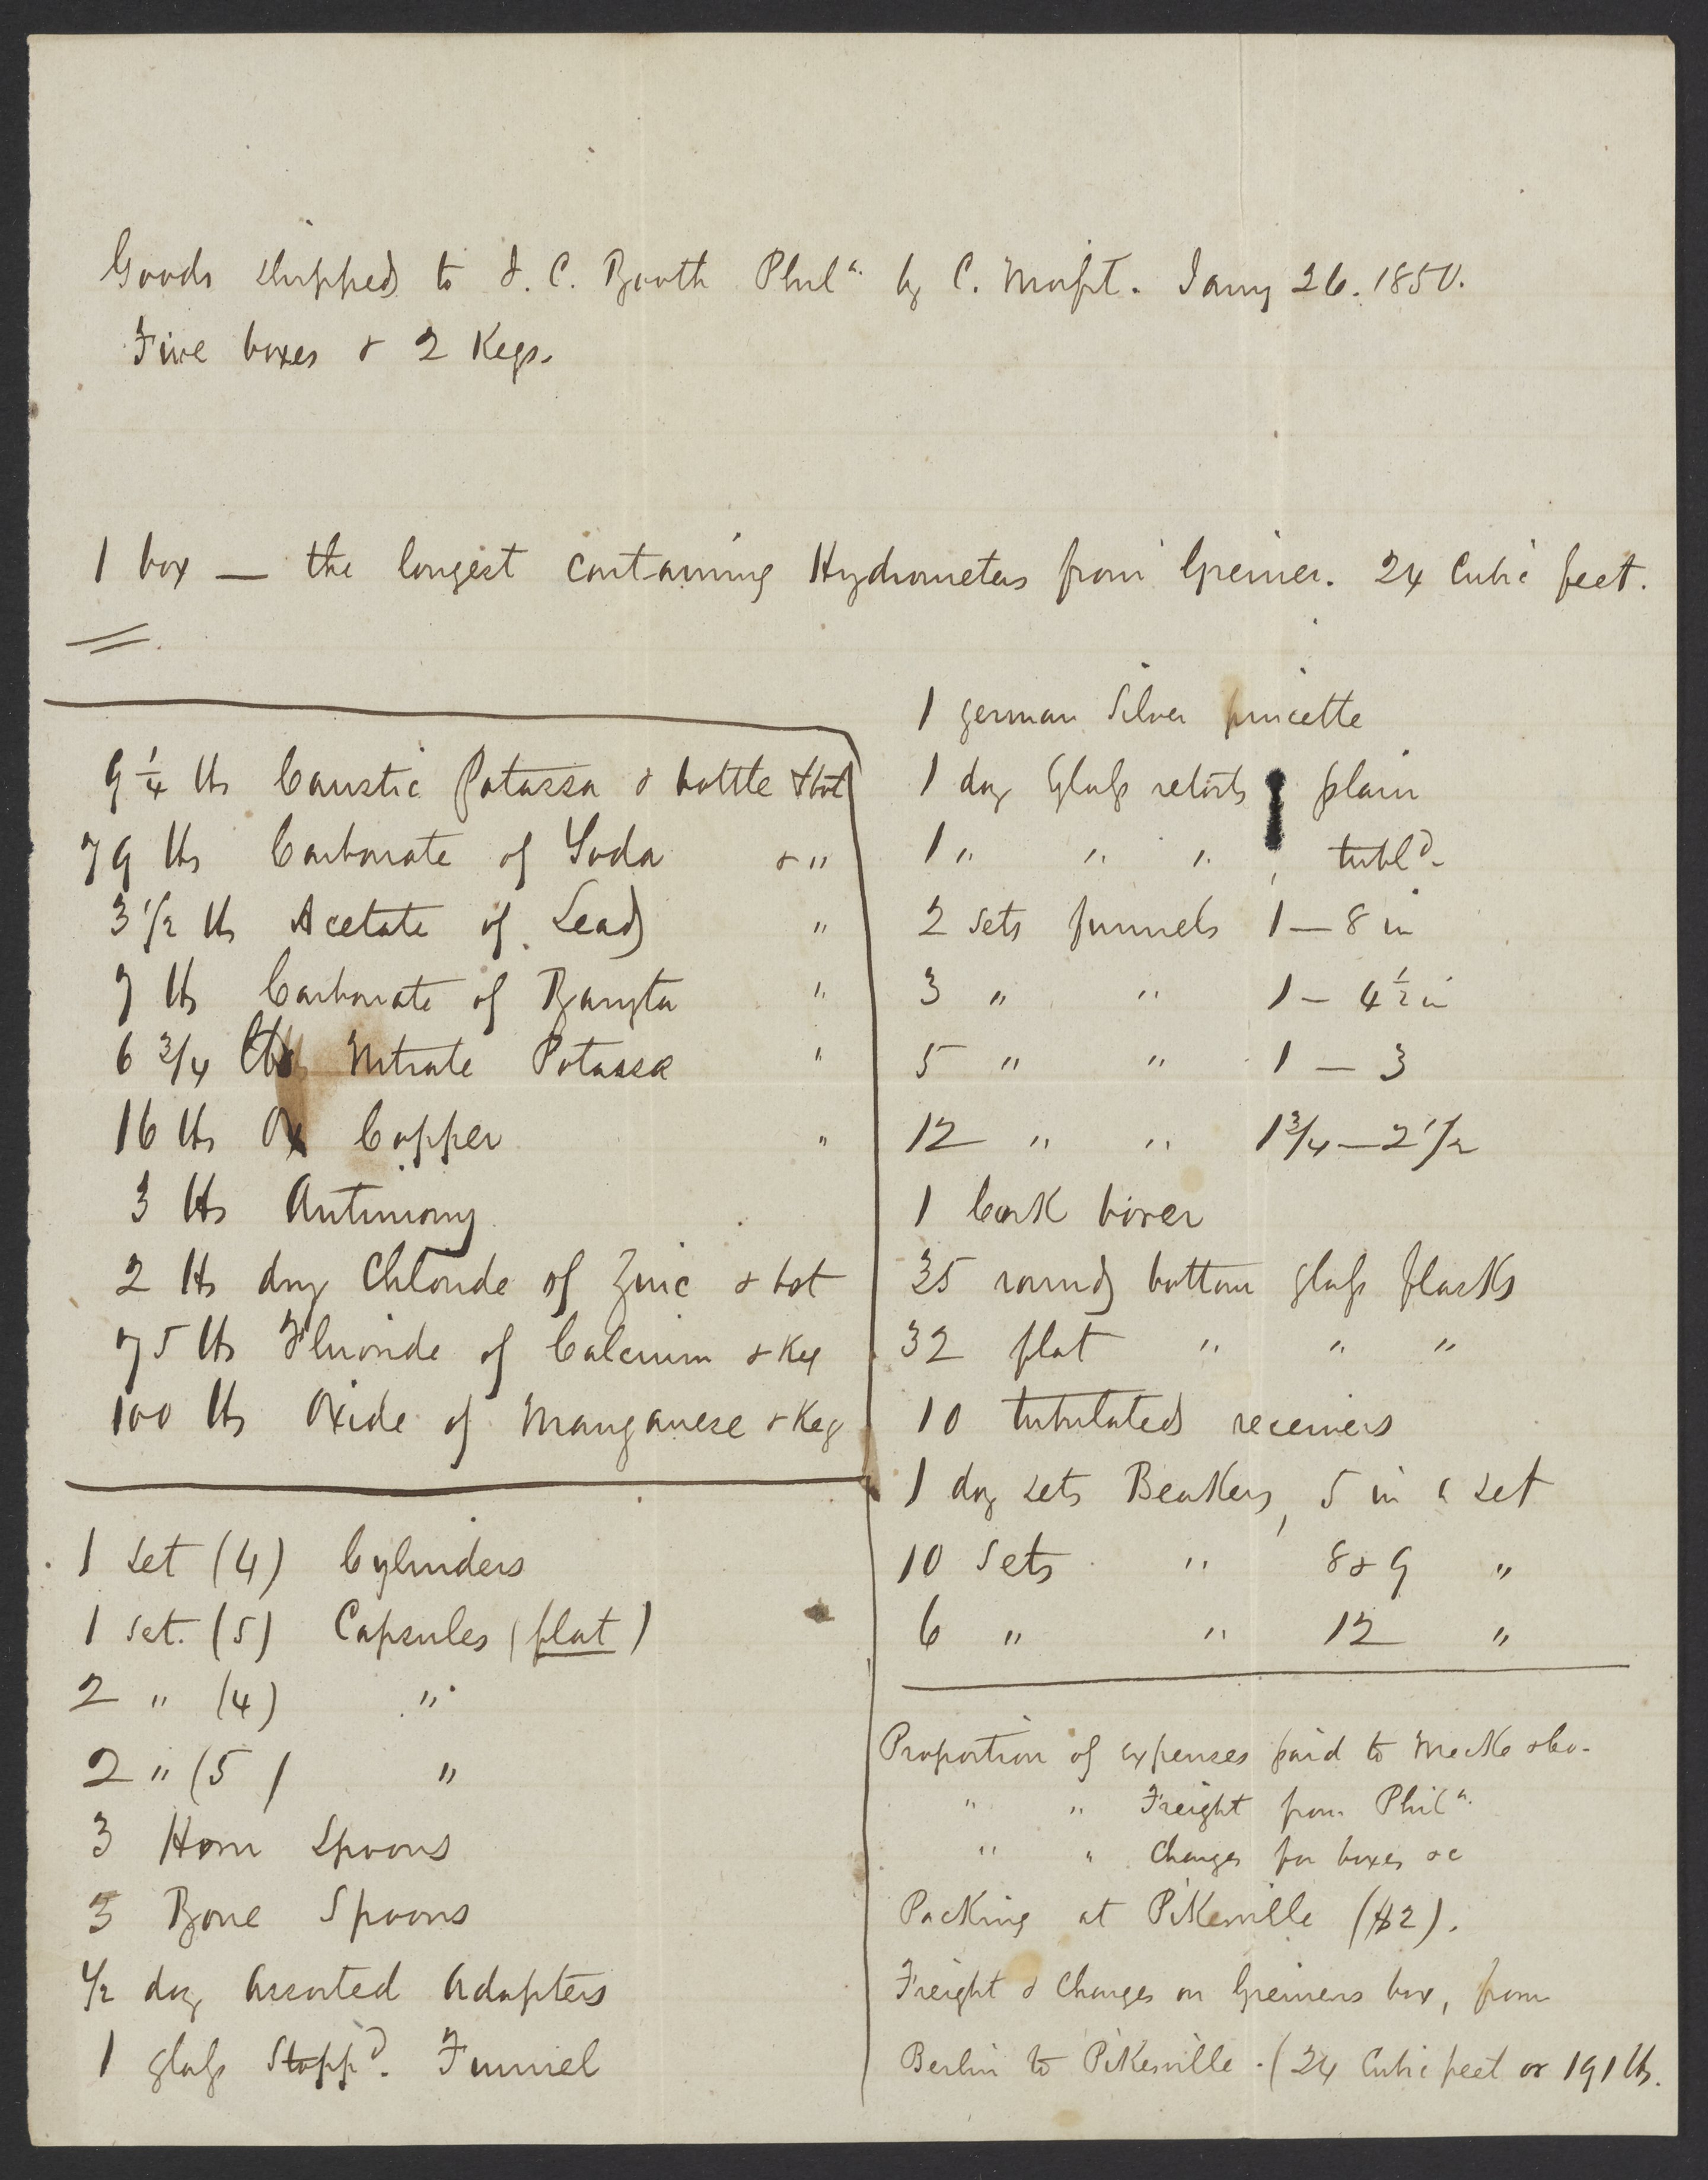 Goods shipped to J. C. Booth Phil^a. by C. Morfit. Jany 26. 1850.
Five boxes & 2 Kegs.
1 box — the longest containing Hydrometers from Greiner. 24 Cubic feet.
9 1/4 lbs Caustic Potassa & bottle & bot
79 lbs Carbonate of Soda & "
3 1/2 lbs Acetate of Lead "
7 lbs Carbonate of Baryta "
6 3/4 lbs Nitrate Potassa "
16 lbs Ox Copper "
3 lbs Antimony
2 lbs dry Chloride of Zinc & bot
75 lbs Fluoride of Calcium & Keg
100 lbs Oxide of Manganese & Keg
1 Set (4) Cylinders
1 Set. (5) Capsules (flat)
2 " (4) "
2 " (5) "
3 Horn Spoons
3 Bone Spoons
1/2 doz Assorted Adapters
1 glass Stopp^d. Funnel
1 german Silver pincette
1 doz Glass retorts, plain
1 " " " , tubl^d.
2 Sets funnels 1 — 8 in
3 " " 1 — 4 1/2 in
5 " " 1 — 3
12 " " 1 3/4 — 2 1/2
1 Cork borer
35 round bottom glass flasks
32 flat " " "
10 tubulated receivers
1 doz sets Beakers, 5 in a set
10 Sets " 8 & 9 "
6 " " 12 "
Proportion of expenses paid to Mecke & Co.
" " Freight from Phil^a.
" " Charges for boxes &c
Packing at Pikesville ($2).
Freight & Charges on Greiners box, from
Berlin to Pikesville. (24 Cubic feet or 191 lbs.